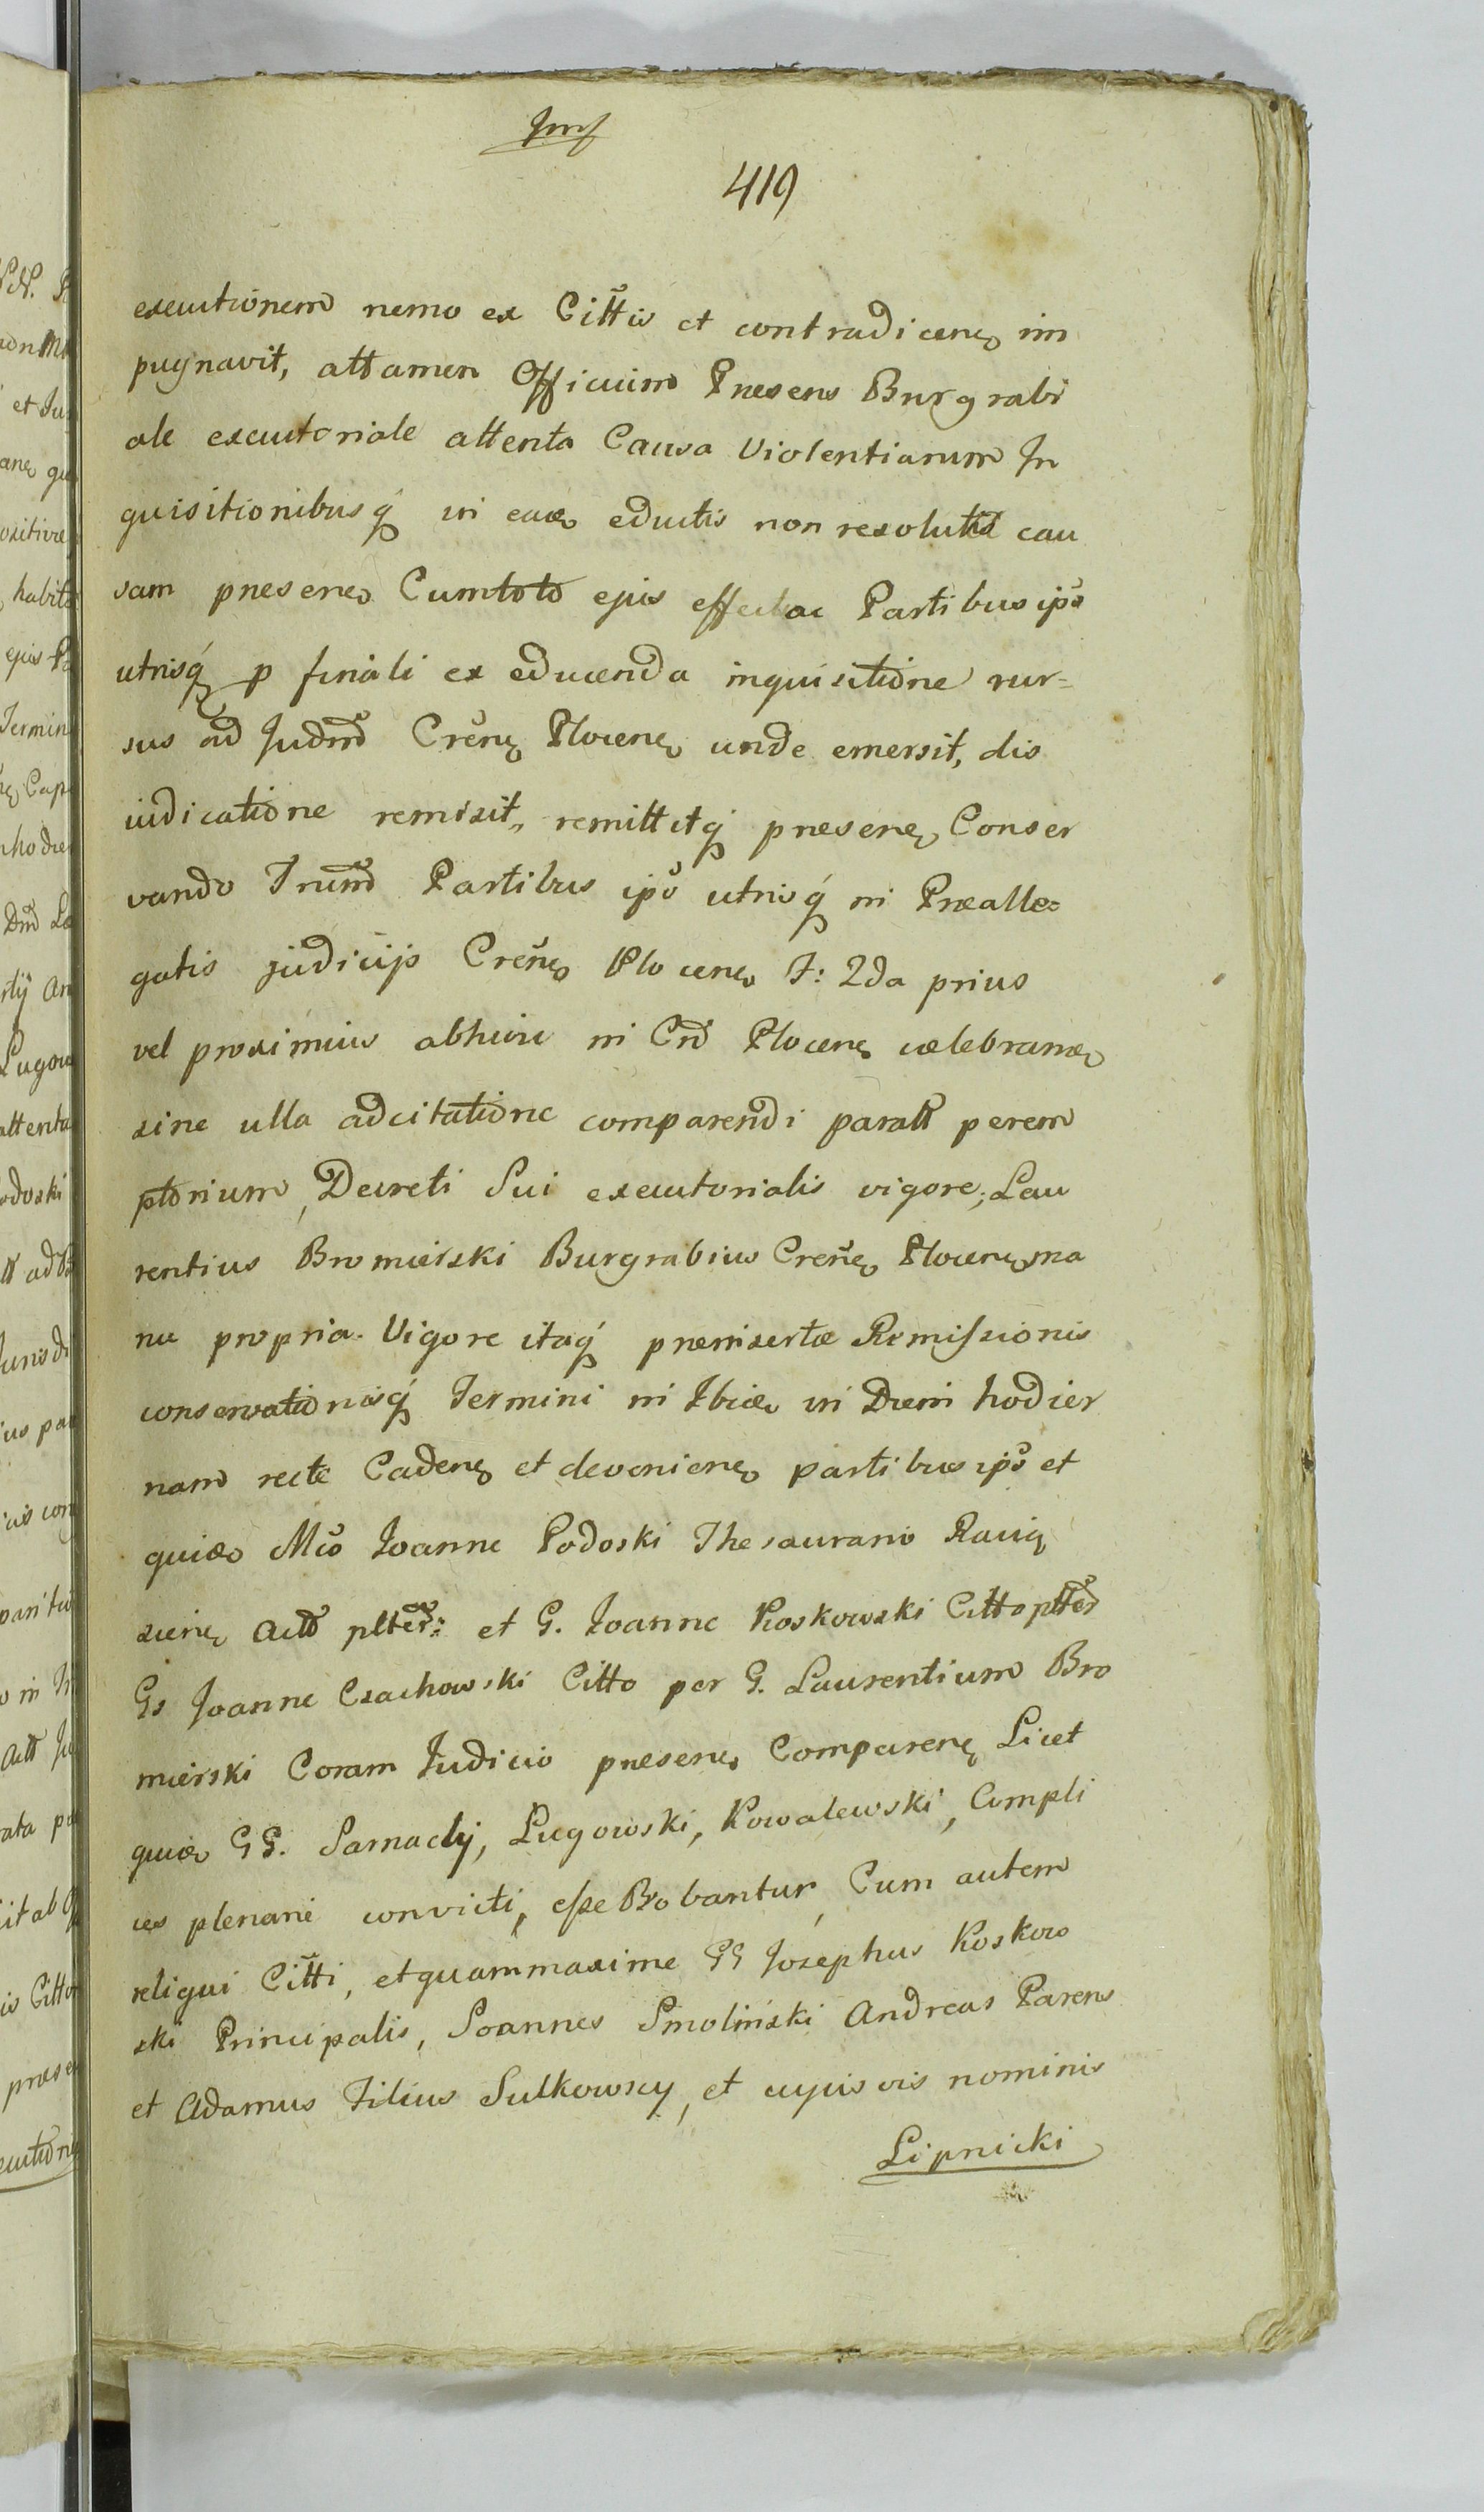 419
executionem nemo ex Citt̃is et contradicen͠ im
pugnavit, attamen Officium Praesens Burgrabi
ale executoriale attenta Causa Violentiarum In
quisitionibusq́ in eam eductis non resolutis cau
sam praesen͠ Cum toto ejus effectu ac Partibus ips̃
utrisq́ p finali ex educenda inquisitione rur=
sus ad Judm̃ Cren̄ Plocen͠ unde emersit, dis
iudicatione remisit, remittitq́ praesen͠ Conser
vando Trum̃ Partibus ips̃ utrisq́ in Praealle=
gatis judicijs Cren̄ Plocen͠ F: 2da prius
vel proximius abhinc in Crõ Plocen͠ celebran͠
sine ulla adcitatione comparendi paratt perem
ptorium, Decreti Sui executorialis vigore, Lau
rentius Bromierski Burgrabius Cren̄ Plocen͠ ma
nu propria. Vigore itaq́ praemissertae Remissionis
conservationisq́ Termini in in Diem hodier
nam recte Caden͠ et devenien͠ partibus ips̃ et
quidem Mco Joanne Podoski Thesaurario Ravi
scien͠ Act̃ et G. Joanne Koskowski Citto
Gs Joanne Czachowski Citto per G. Laurentium Bro
mierski Coram Judicio praesen͠ Comparen͠ Licet
quidem GG. Sarnacky, Lugowski, Kowalewski, Compli
ces plenarie convicti, esse Probantur, Cum autem
reliqui Citt̃i, et quam maxime GG Josephus Koskow
ski Principalis, Joannes Smoliński Andreas Parens
et Adamus Filius Sulkowscy, et cujusvis nominis
Lipnicki